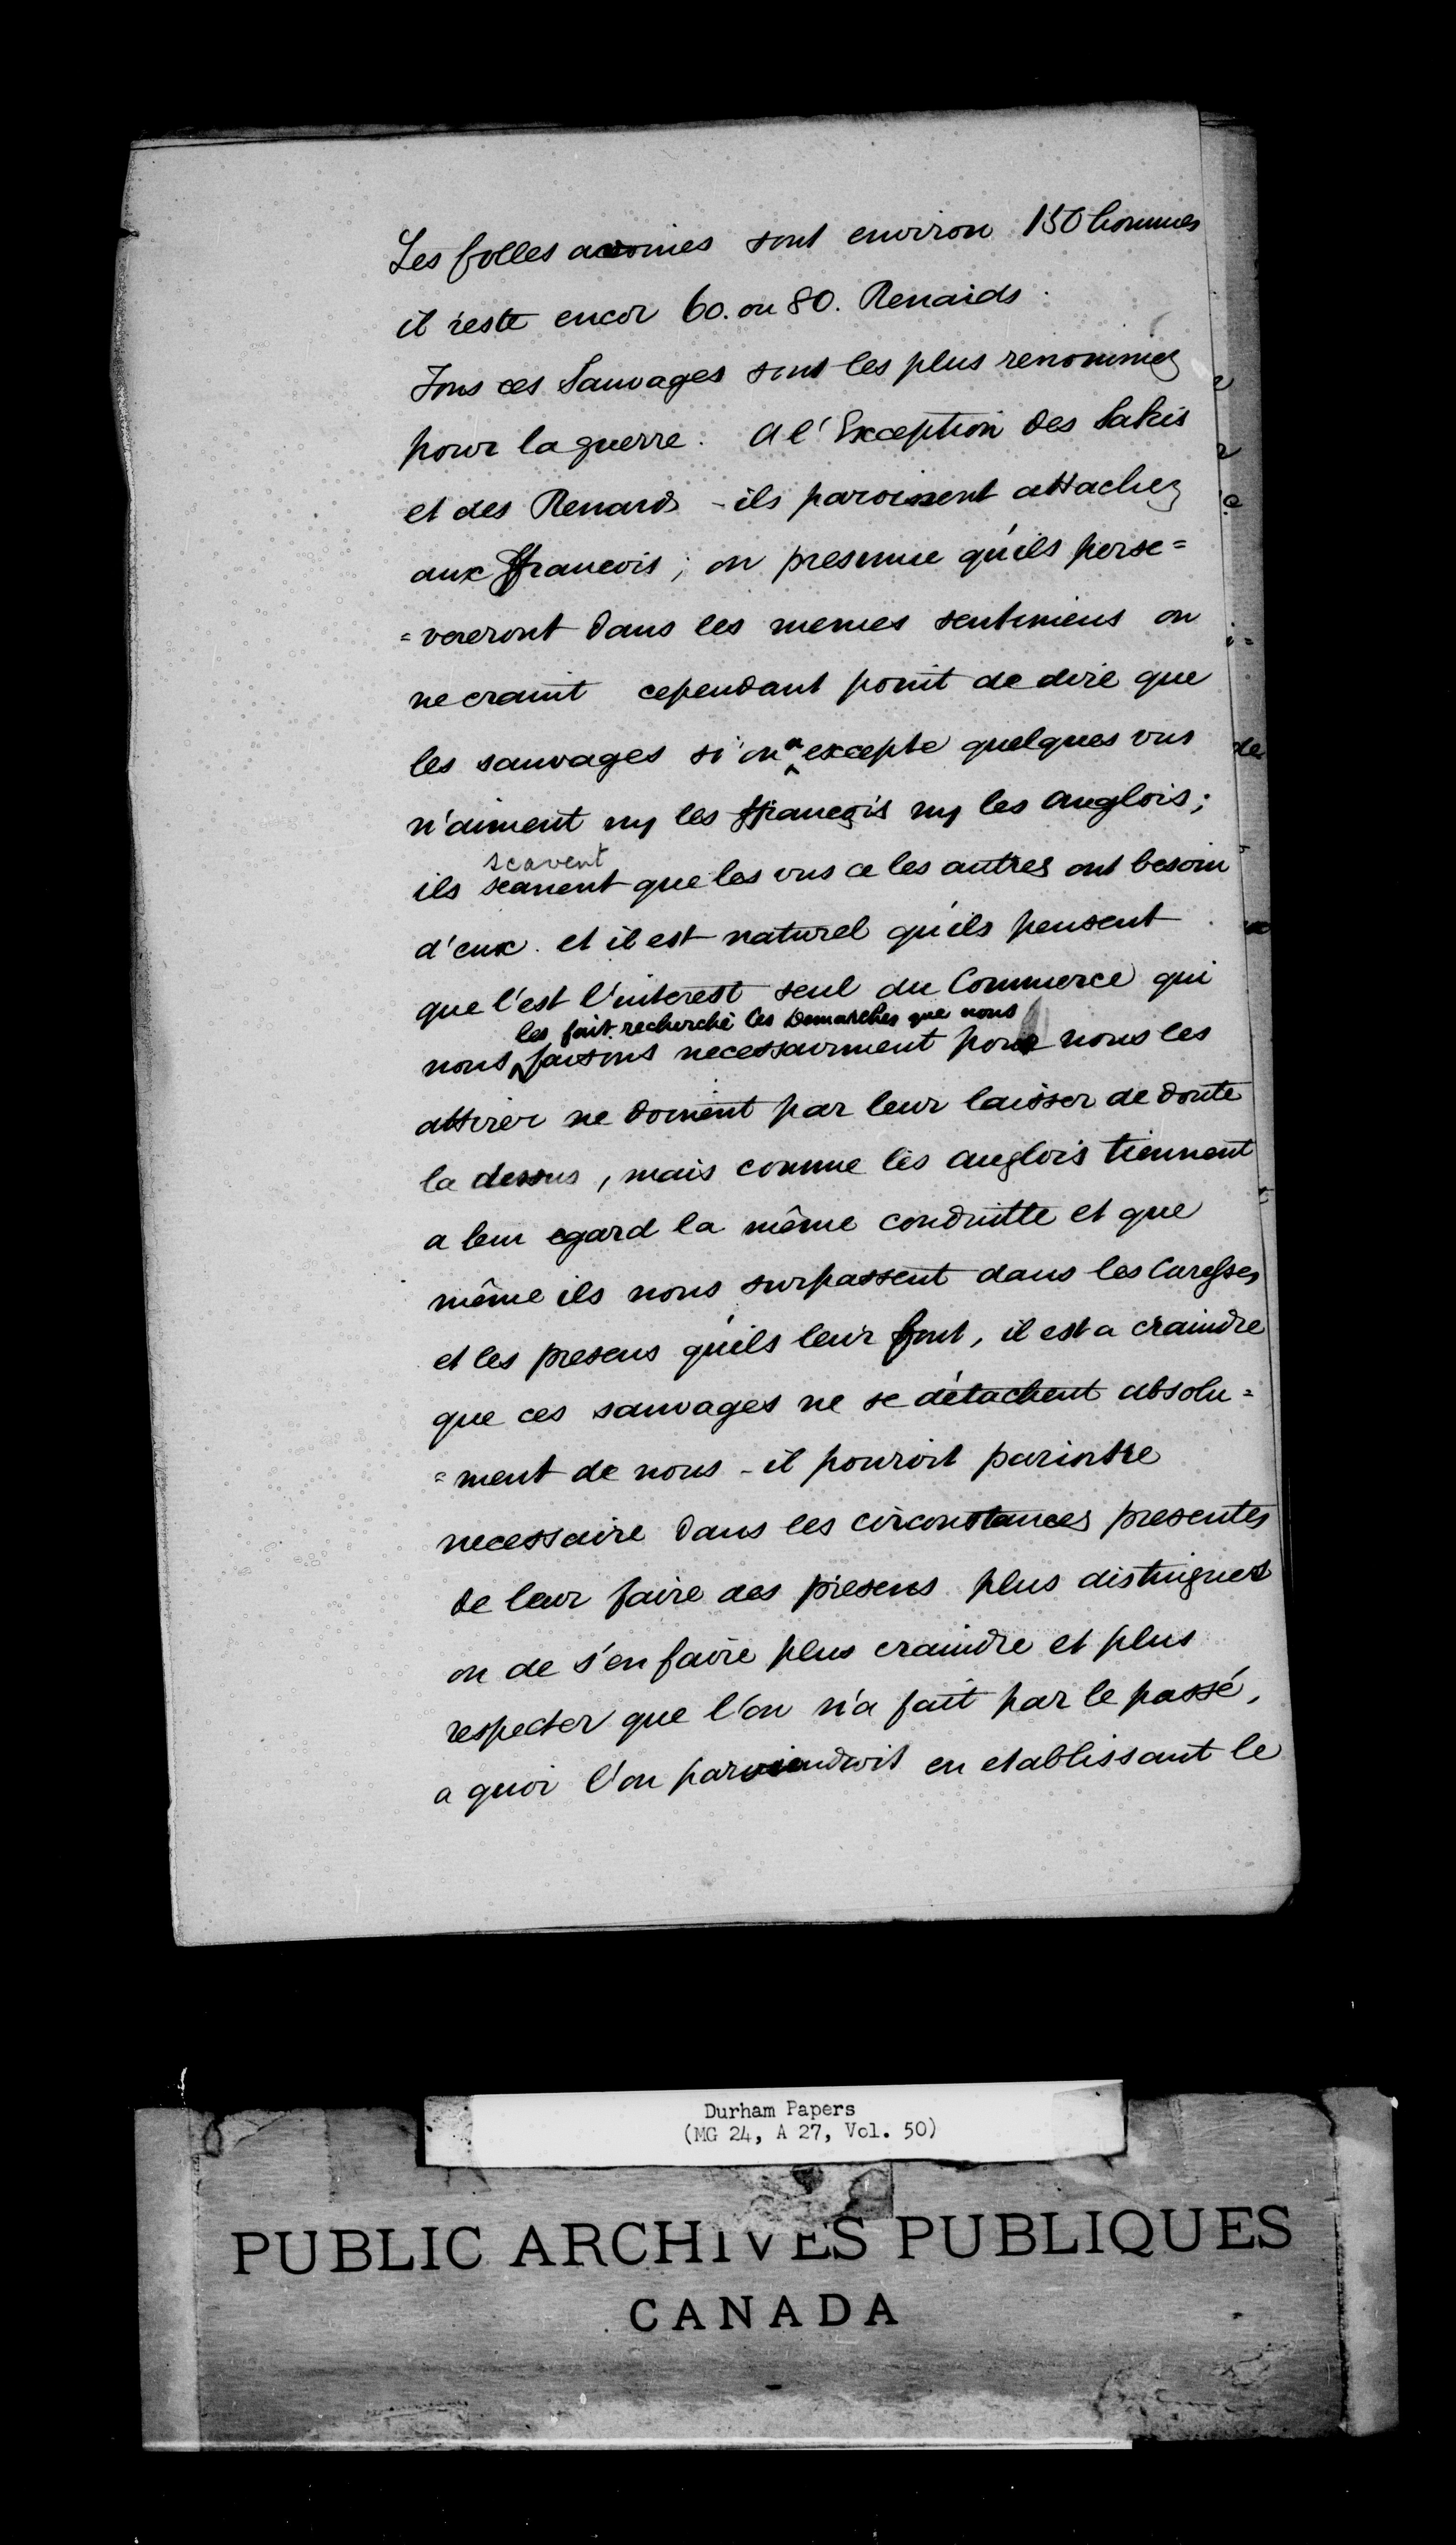 Les folles avoines sont environ 150 hommes
il reste encor 60. ou 80. Renards.
Tous ces Sauvages sont les plus renommez
pour la guerre. A l'Exception des Sakis
et des Renards - ils paroissent attachez
aux ffrancois; on presume qu'ils perse=
=vereront dans les memes sentimens on
ne craint cependant point de dire que
les sauvages si on en excepte quelques uns
n'aiment ny les ffrancois ny les anglois;
scavent
ils scavent que les uns ce les autres ont besoin
d'eux. et il est naturel qu'ils pensent
que c'est l'interest seul du Commerce qui
les fait recherché les Demarches que nous
nous faisons necessairment pour nous les
attirer ne doivent par leur laisser de doute
la dessus, mais comme les anglois tiennent
a leur egard la même conduitte et que
même ils nous surpassent dans les Caresses
et les presens qu'ils leur font, il est a craindre
que ces sauvages ne se détachent absolu=
=ment de nous - il pouroit
necessaire dans les circonstances presentes
de leur faire des presens plus distingues
ou de s'en faire plus craindre et plus
respecter que l'on n'a fait par le passé,
a quoi l'on parviendroit en etablissant le
de
Durham Papers
(MG 24, A 27, Vol. 50)
PUBLIC ARCHIVES PUBLIQUES
CANADA